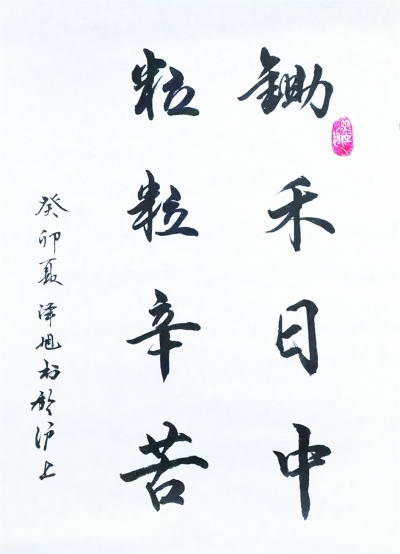 鋤禾日中
粒粒辛苦
癸卯夏泽旭书於沪上